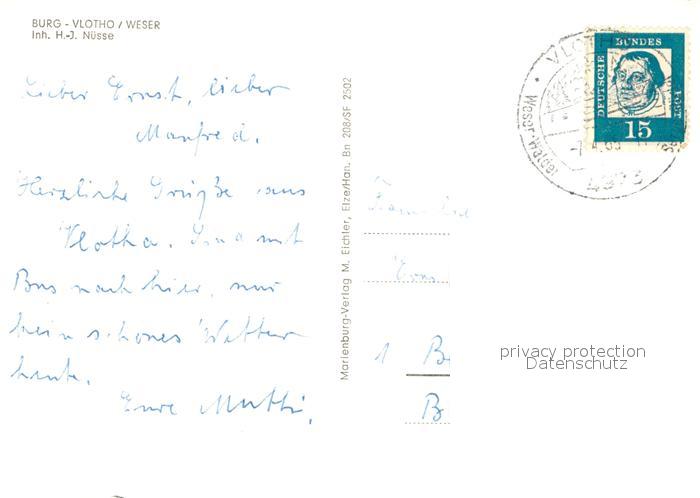 BURG - VLOTHO / WESER
Inh. H.-J. Nüsse
Lieber Ernst, lieber
Manfred.
Herzliche Grüße aus
Vlotho. Sind mit
Bus nach hier, nur
kein schönes Wetter
heute.
Eure Mutti.
Marienburg-Verlag M. Eichler, Elze/Han. Bn 208/SF 2502
1 B
B
VLOTH
4973
DEUTSCHE
BUNDES
POST
15
privacy protection
Datenschutz